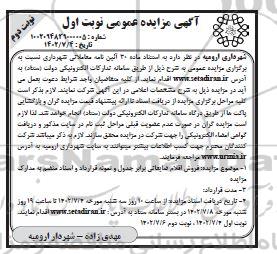 نوبت دوم
آگهی مزایده عمومی نوبت اول
شماره : ۱۰۰۲۰۹۴۸۲۹۰۰۰۰۰۵
تاریخ : ۱۴۰۲/۷/۴
شهرداری ارومیه در نظر دارد به استناد ماده ۳۰ آئین نامه معاملاتی شهرداری نسبت به
برگزاری مزایده عمومی به شرح ذیل از طریق سامانه تدارکات الکترونیکی دولت (ستاد) به
آدرس www.setadiran.ir اقدام نماید. از کلیه متقاضیان واجد شرایط دعوت بعمل می
آید در مزایده ذیل به شرح مشخصات اعلامی در این آگهی شرکت نمایند. لازم بذکر است
کلیه مراحل برگزاری مزایده از دریافت اسناد تا ارائه پیشنهاد قیمت مزایده گران و بازگشایی
پاکت ها از طریق درگاه سامانه تدارکات الکترونیکی دولت (ستاد) انجام خواهد شد. لذا لازم
است مزایده گران در صورت عدم عضویت قبلی مراحل ثبت نام در سایت مذکور و دریافت
گواهی امضاء الکترونیکی را جهت شرکت در مزایده محقق سازند. لازم به ذکر میباشد شرکت
کنندگان محترم جهت کسب اطلاعات بیشتر میتوانند به سایت شهرداری ارومیه به آدرس
www.urmia.ir مراجعه فرمایند.
۱- موضوع مزایده: فروش اقلام ضایعاتی برابر جدول و نمونه قرارداد و اسناد منضم به مدارک
۲- مدت قرارداد:
۴- تاریخ دریافت اسناد مزایده: از ساعت ۱۰ روز سه شنبه مورخه ۱۴۰۲/۷/۴ تا ساعت ۱۹ روز
شنبه مورخه ۱۴۰۲/۷/۸ در بستر سامانه ستاد به آدرس : www.setadiran.ir اقدام نمایند.
نوبت اول ۱۴۰۲/۷/۴ ، نوبت دوم ۱۴۰۲/۷/۶
مهدی زاده - شهردار ارومیه